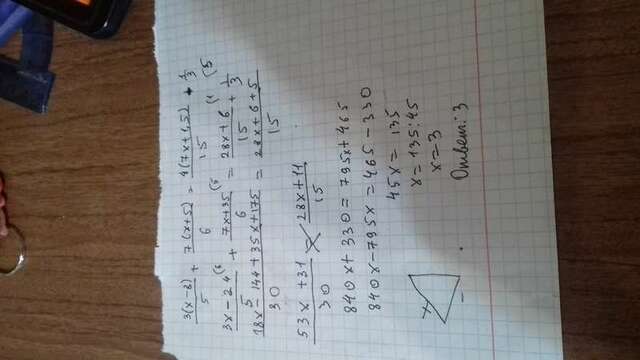 3(x-8)/5 + 7(x+5)/6 = 4(7x+1,5)/15 + 1/3
3x-24(6/5 + 7x+35(5/6 = 28x+6(1/15 + 1/3(5
18x-144+35x+175/30 = 28x+6+5/15
53x+31/30 = 28x+11/15
840x+330=795x+465
840x-795x=465-330
45x=135
x=135:45
x=3
Ответ: 3